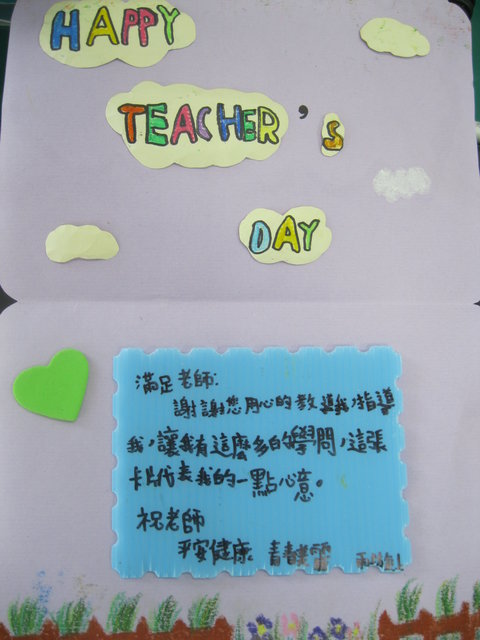 HAPPY
TEACHER's
DAY
滿足老師:
謝謝您用心的教導我,指導
我,讓我有這麼多的學問,這張
卡片代表我的一點心意。
祝老師
平安健康 青春美麗